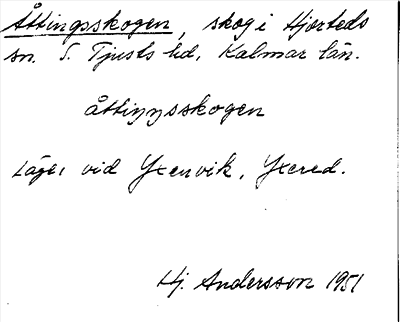 Åttingsskogen, skog i Hjorteds
sn. S. Tjusts hd, Kalmar län.
åttiŋŋsskogen
Läge: vid Yxenvik, Yxered.
Hj. Andersson 1951